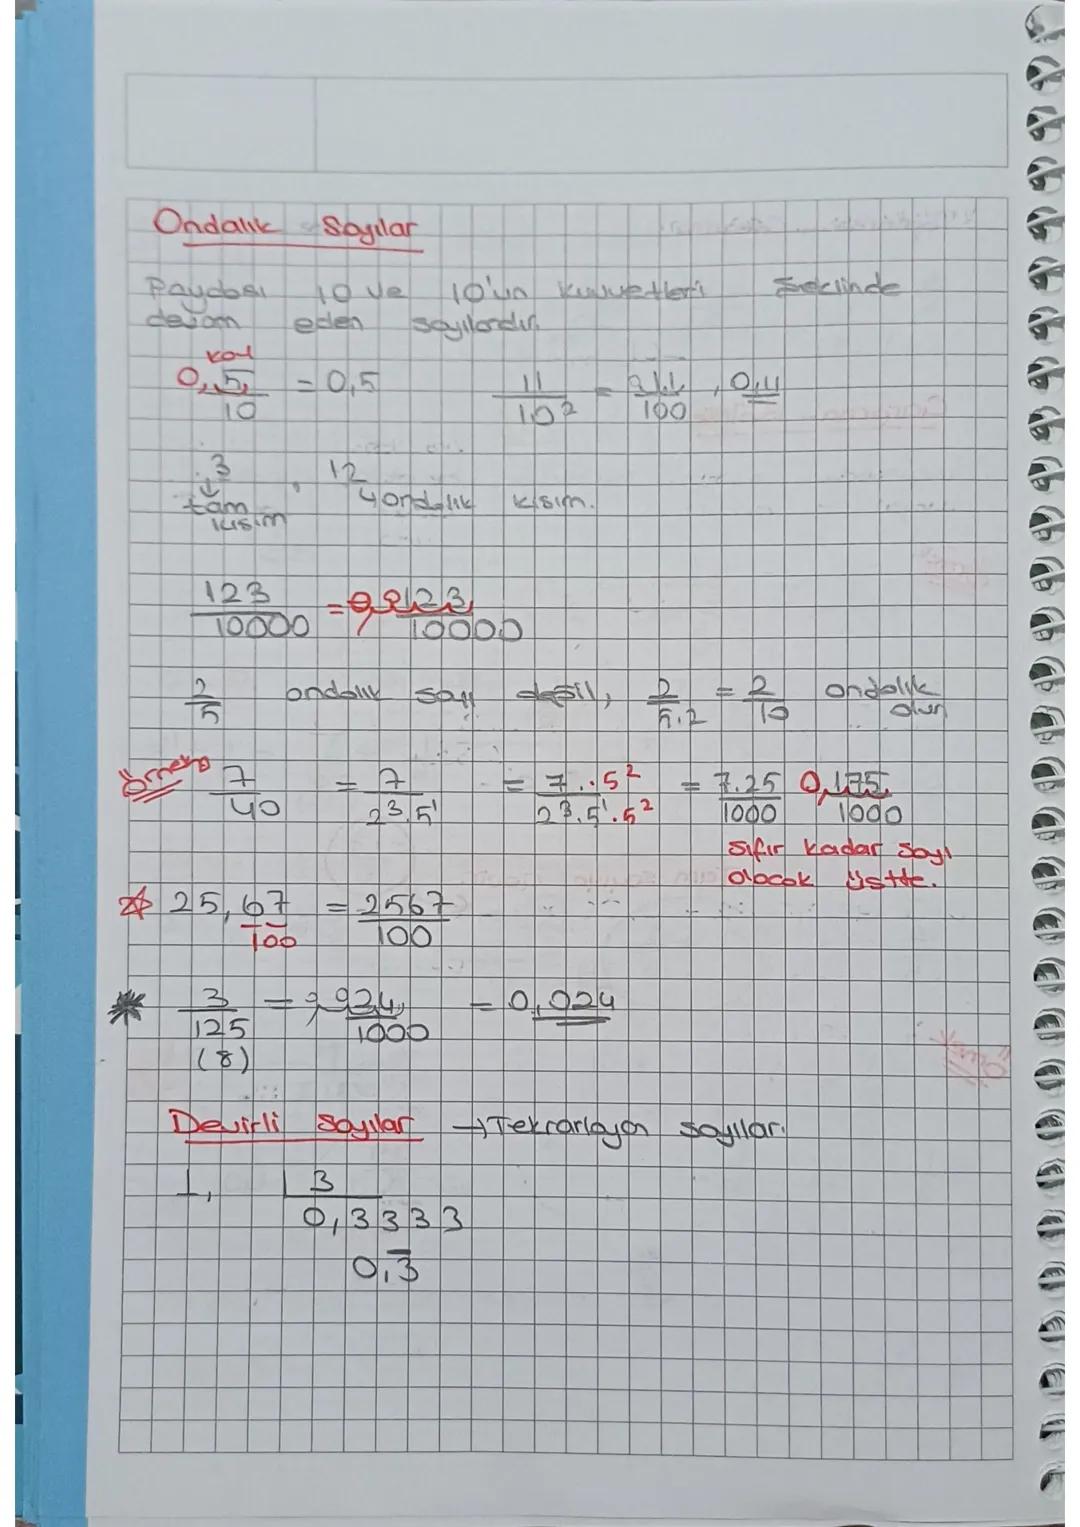 Ondalık Sayılar
Paydası 10 ve 10'un kuvvetleri şeklinde
devam eden sayılardır.
kay
0, 5/10 = 0,5 11/10² = 11/100, 0,11
3 , 12
tam kısım ondalık kısım.
123/10000 = 0,0123/10000
2/5 ondalık sayı değil, 2/5.2 = 2/10 ondalık olur
Örnek 7/40 = 7/2³.5¹ = 7.5²/2³.5¹.5² = 7.25/1000 0,175/1000
sıfır kadar sayı
olacak üstte.
25,67/100 = 2567/100
3/125 (8) = 0,024/1000 = 0,024
Devirli Sayılar → Tekrarlayan sayılar.
1, | 3
0,3333
0,3̅